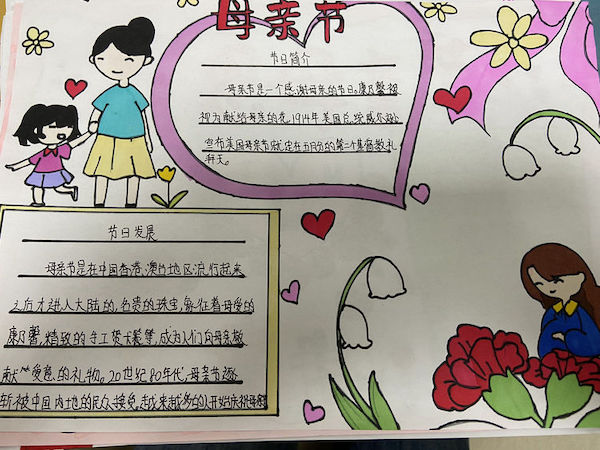 母亲节
节日简介
母亲节是一个感谢母亲的节日。康乃馨被
视为献给母亲的花,1914年美国总统威尔逊
宣布美国母亲节就定在五月份的第二个星期
天。
节日发展
母亲节是在中国香港、澳台地区流行起来
之后才进入大陆的,名贵的珠宝,象征着母爱的
康乃馨,精致的手工贺卡等,成为人们向母亲敬
献“爱意”的礼物。20世纪80年代,母亲节逐
渐被中国内地的民众接受,越来越多的人开始庆祝母亲